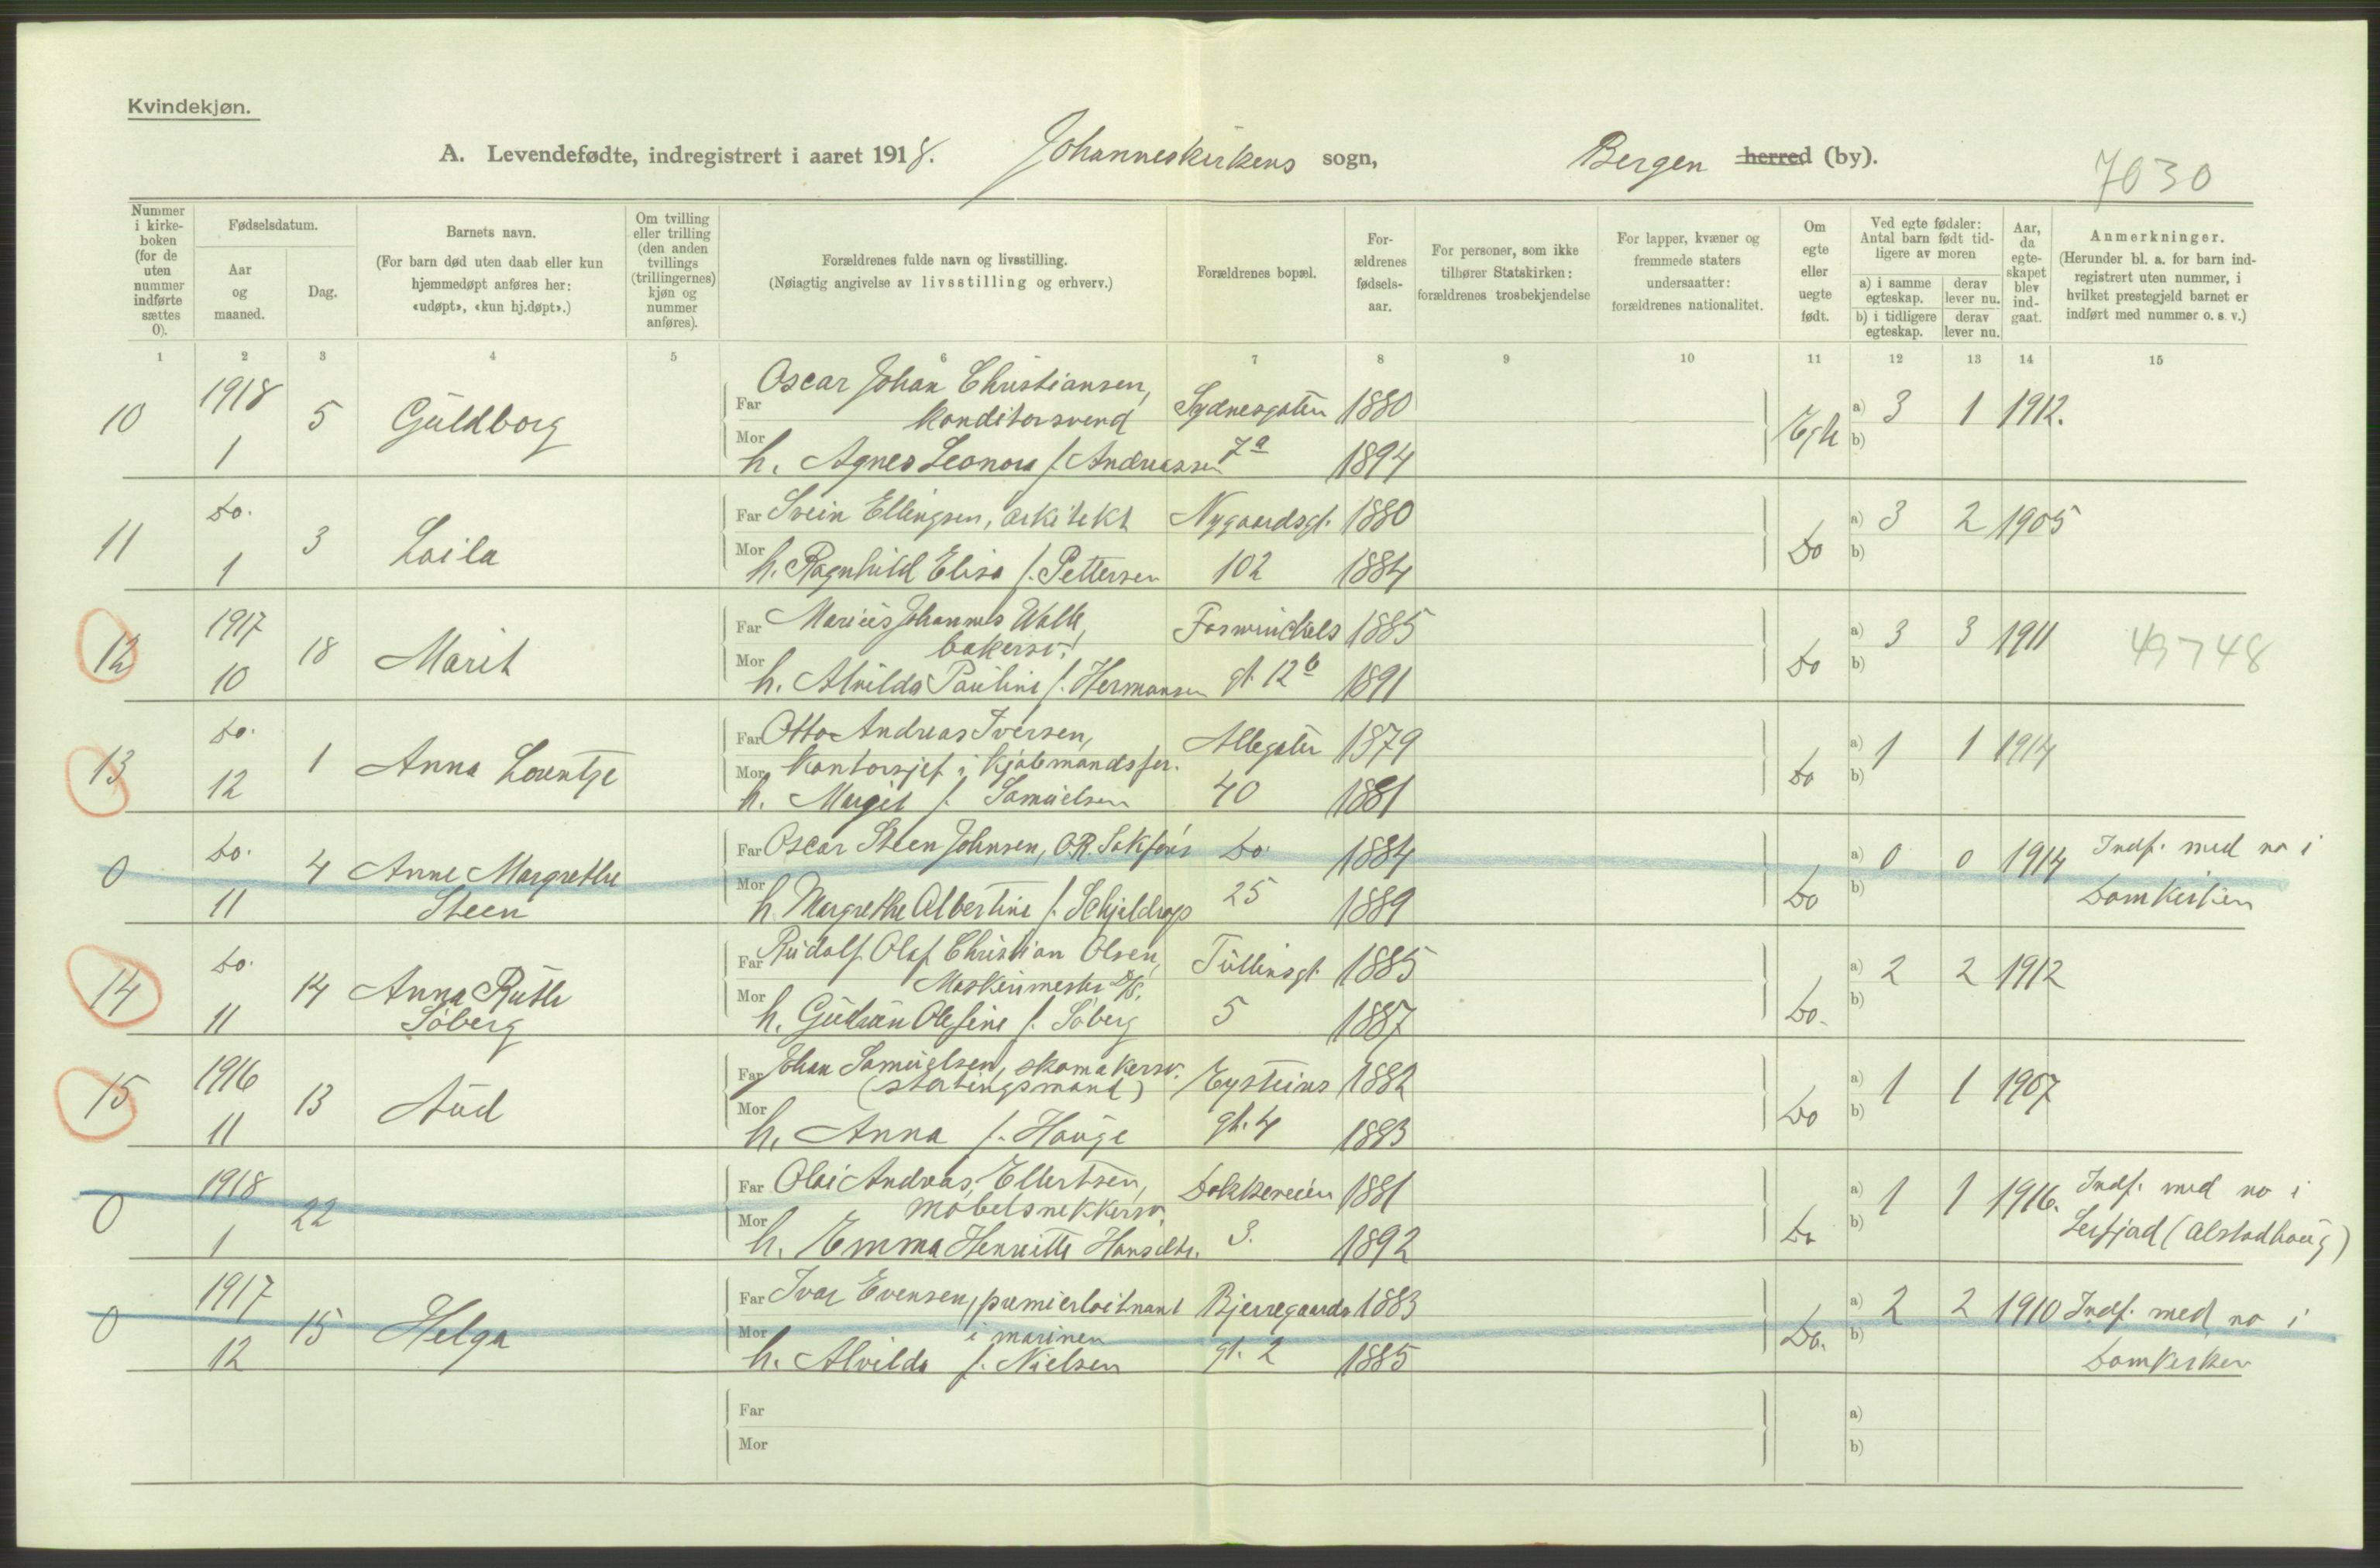 Kvindekjøn.
A. Levendefødte, indregistrert i aaret 1918. Johanneskirkens sogn, Bergen herred (by).
7030
Nummer i kirkeboken (for de uten nummer indførte sættes 0).
Fødselsdatum.
Aar og maaned.
Dag.
Barnets navn.
(For barn død uten daab eller kun hjemmedøpt anføres her: «udøpt», «kun hj.døpt».)
Om tvilling eller trilling (den anden tvillings (trillingernes) kjøn og nummer anføres).
Forældrenes fulde navn og livsstilling.
(Nøiagtig angivelse av livsstilling og erhverv.)
Forældrenes bopæl.
Forældrenes fødselsaar.
For personer, som ikke tilhører Statskirken: forældrenes trosbekjendelse
For lapper, kvæner og fremmede staters undersaatter: forældrenes nationalitet.
Om egte eller uegte født.
Ved egte fødsler: Antal barn født tidligere av moren
a) i samme egteskap. derav lever nu.
b) i tidligere egteskap. derav lever nu.
Aar, da egteskapet blev indgaat.
Anmerkninger.
(Herunder bl. a. for barn indregistrert uten nummer, i hvilket prestegjeld barnet er indført med nummer o. s. v.)
1 2 3 4 5 6 7 8 9 10 11 12 13 14 15
10 1918 5 Guldborg Far Oscar Johan Christiansen, konditorsvend Sydnesgaten 1880 Egte a) 3 1 1912.
1 Mor h. Agnes Leonora f. Andreassen 7a 1894 b)
11 Do. 3 Laila Far Svein Ellingsen, arkitekt Nygaardsgt. 1880 Do a) 3 2 1905
1 Mor h. Ragnhild Elisa f. Pettersen 102 1884 b)
12 1917 18 Marit Far Marius Johannes Walle, bakersv. Foswinckels 1885 Do a) 3 3 1911 49748
10 Mor h. Alvilda Pauline f. Hermansen gt. 12b 1891 b)
13 Do. 1 Anna Lorentze Far Otto Andreas Iversen, Allegaten 1879 Do a) 1 1 1914
12 Mor kontorsjef i kjøbmandsfor. h. Margit f. Samuelsen 40 1881 b)
0 Do. 4 Anne Margrethe Far Oscar Steen Johnsen, O.R. Sakfører Do. 1884 Do a) 0 0 1914 Indf. med no i
11 Steen Mor h Margrethe Albertine f. Schjeldrop 25 1889 b) Domkirken
14 Do. 14 Anna Ruth Far Rudolf Olaf Christian Olsen, Maskinmester D/S. Tullinsgt. 1885 Do. a) 2 2 1912
11 Söberg Mor h. Gudrun Olefine f. Söberg 5 1887 b)
15 1916 13 Aud Far Johan Samuelsen, skomakersv. (stortingsmand) Eysteins 1882 Do a) 1 1 1907
11 Mor h. Anna f. Hauge gt. 4 1883 b)
0 1918 22 Far Olai Andreas Ellertsen, møbelsnekkersv. Dokkeveien 1881 Do a) 1 1 1916. Indf. med no i
1 Mor h. Emma Henriette Hansdtr. 3. 1892 b) Leirfjord (Alstadhoug)
0 1917 15 Helga Far Ivar Evensen, premierløitnant Bjerregaards 1883 Do. a) 2 2 1910 Indf. med no i
12 Mor i marinen h. Alvilda f. Nielsen gt. 2 1885 b) Domkirken
Far a)
Mor b)